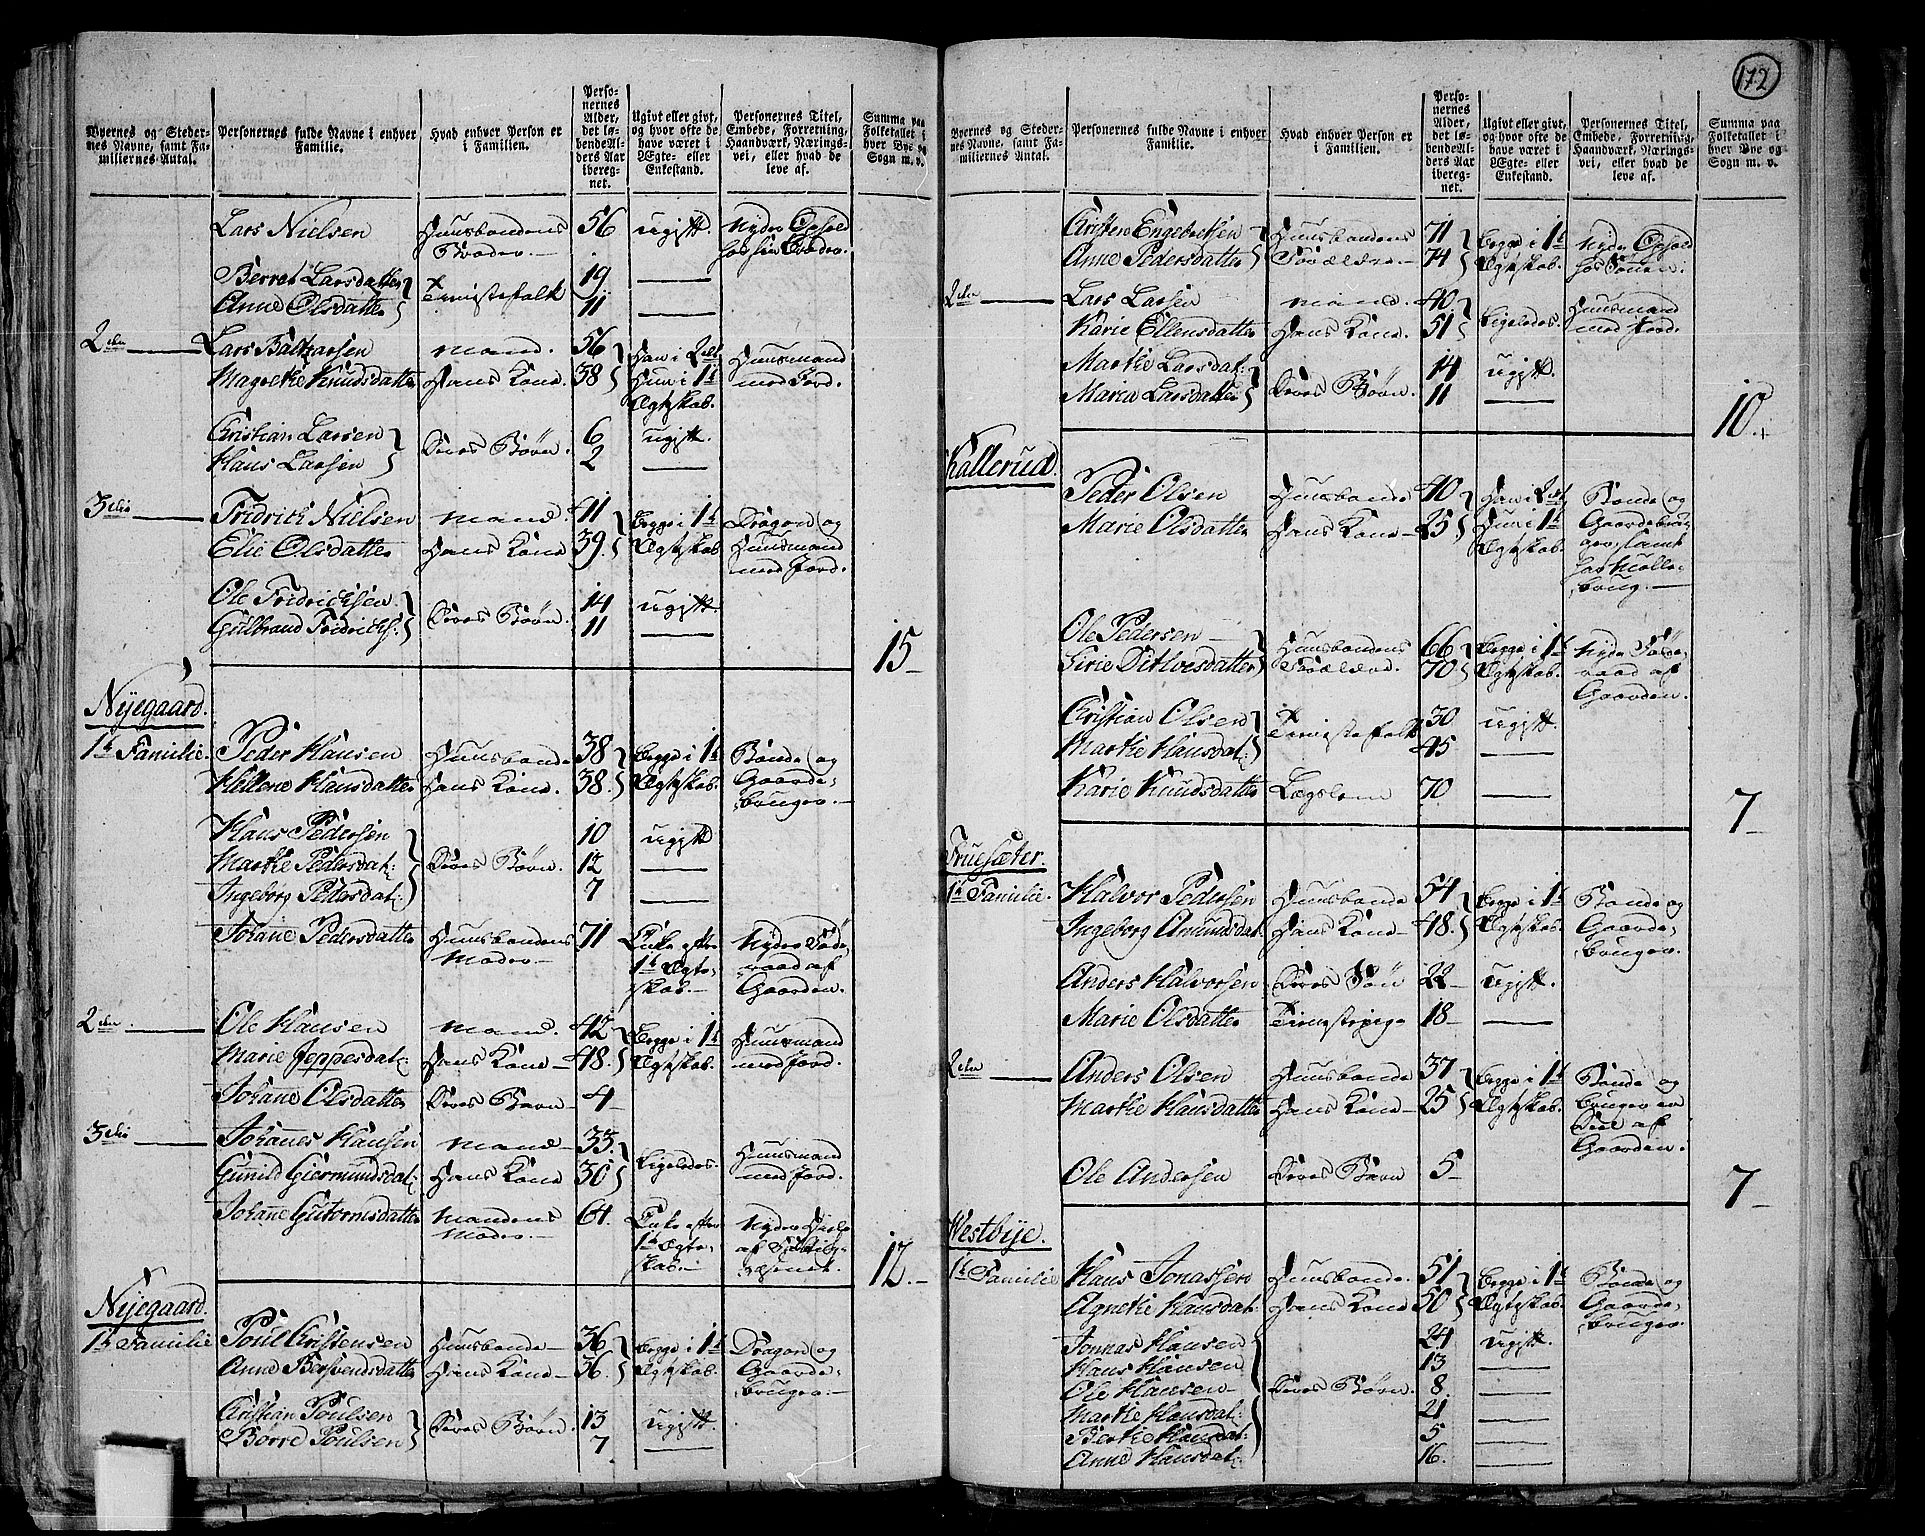 172
Byernes og Steder-
nes Navne, samt Fa-
miliernes Antal.
Personernes fulde Navne i enhver
Familie.
Hvad enhver Person er
i Familien.
Perso-
nernes
Alder,
det lø-
bende Al-
ders Aar
ibereg-
net.
Ugivt eller givt,
og hvor ofte de
have været i
Ægte- eller
Enkestand.
Personernes Titel,
Embede, Forretning,
Haandværk, Nærings-
vei, eller hvad de
leve af.
Summa paa
Folketallet i
hver Bye og
Sogn m. v.
Lars Nielsen Huusbondens 56 ugift. Nyder Ophold
Broder.— hos sin Broder.
Berret Larsdatter } Tienistefolk 19 —
Anne Olsdatter } 11
2den — Lars Baltzarsen mand. 56 } Han i 2det Huusmand
Magrethe Knudsdatter Hans Kone. 38 } Hun i 1st med Jord.
Ægteskab.
Cristian Larsen } Deres Børn. 6 ugift.
Hans Larsen } 2 —
3die — Fridrich Nielsen mand. 41 } Begge i 1st Dragon og
Elie Olsdatter Hans Kone 39 } Ægteskab Huusmand
med Jord.
Ole Fridrichsen } Deres Børn. 14 ugift.
Gulbrand Fridrichs: } 11 —
15—
Nyegaard.
1st Familie. Peder Hansen Huusbonde 38 } Begge i 1st Bonde og
Hellene Hansdatter Hans Kone. 38. } Ægteskab. Gaarde-
bruger.—
Hans Pedersen } 10 ugift
Marthe Pedersdat: } Deres Børn. 12 —
Ingeborg Pedersdat: } 7 —
Johane Pedersdatter Huusbondens 71 Enke efter Nyder Føde-
Moder— 1st Ægte- raad af
skab.— Gaarden.
2den. — Ole Hansen mand. 42 } Begge i 1st Huusmand
Marie Jeppesdat: Hans Kone— 48. } Ægteskab. med Jord.
Johane Olsdatter Deres Barn— 4—
3die — Johanes Hansen mand— 33. } Ligeledes. Huusmand
Gunild Giermundsdat: Hans Kone 30 } med Jord.
Johane Gutormsdatter Mandens 64. Enke efter Nyder Hielp
Moder.— 1st Ægte- af Fattig-
skab.— væsenet.
12.—
Nyegaard.
1st Familie Poul Cristensen Huusbonde— 36 } Begge i 1st Dragon og
Anne Bersvendsdatter Hans Kone— 36. } Ægteskab. Gaarde-
bruger.—
Cristian Poulsen } Deres Børn. 13 ugift.
Borre Poulsen } 7 —
Byernes og Steder-
nes Navne, samt Fa-
miliernes Antal.
Personernes fulde Navne i enhver
Familie.
Hvad enhver Person er
i Familien.
Perso-
nernes
Alder,
det lø-
bende Al-
ders Aar
ibereg-
net.
Ugivt eller givt,
og hvor ofte de
have været i
Ægte- eller
Enkestand.
Personernes Titel,
Embede, Forretning,
Haandværk, Nærings-
vei, eller hvad de
leve af.
Summa paa
Folketallet i
hver Bye og
Sogn m. v.
Cristen Engebretsen } Huusbondens 71 } Begge i 1st Nyder Ophold
Anne Pedersdatter } Forældre.— 74 } Ægteskab. hos Sønen.
2den — Lars Larsen mand. 40 } Ligeledes. Huusmand
Karie Ellensdatter Hans Kone. 51 } med Jord.
Marthe Larsdat: } Deres Børn. 14 ugift.
Maria Larsdatter } 11 —
10.
Kallerud. Peder Olsen Huusbonde 40 } Han i 2det Bonde og
Marie Olsdatter Hans Kone— 25 } Hun i 1st Gaardebru-
Ægteskab. ger, samt
har Mølle-
brug.—
Ole Pedersen— } Huusbondens 66 } Begge i 1st Nyder Føde-
Sirie Ditlovesdatter } Forældre. 70 } Ægteskab. raad af
Gaarden.
Cristian Olsen } Tienistefolk 30 ugift.
Marthe Hansdat: } 45 —
Karie Knudsdatter Lægslem 70 —
7—
Fruesæter.
1st Familie. Halvor Pedersen Huusbonde 54 } Begge i 1st Bonde og
Ingeborg Amundsdat. Hans Kone— 48. } Ægteskab. Gaarde-
bruger.
Anders Halvorsen Deres Søn 22— ugift.
Marie Olsdatter Tienistepige— 18— —
2den — Anders Olsen Huusbonde 37 } Begge i 1st Bonde og
Marthe Hansdatter Hans Kone— 25 } Ægteskab. bruger en
Deel af
Gaarden.
Ole Andersen Deres Barn 5—
7—
Westbye.
1st Familie Hans Jonassen Huusbonde. 51 } Begge i 1st Bonde og
Agnethe Hansdat: Hans Kone. 50 } Ægteskab. Gaarde-
bruger.
Jonnas Hansen } 24 ugift.
Hans Hansen 13 —
Ole Hansen— Deres Børn. 8 —
Marthe Hansdat: 21 —
Berthe Hansdat: 5 —
Anne Hansdat: } 16. —